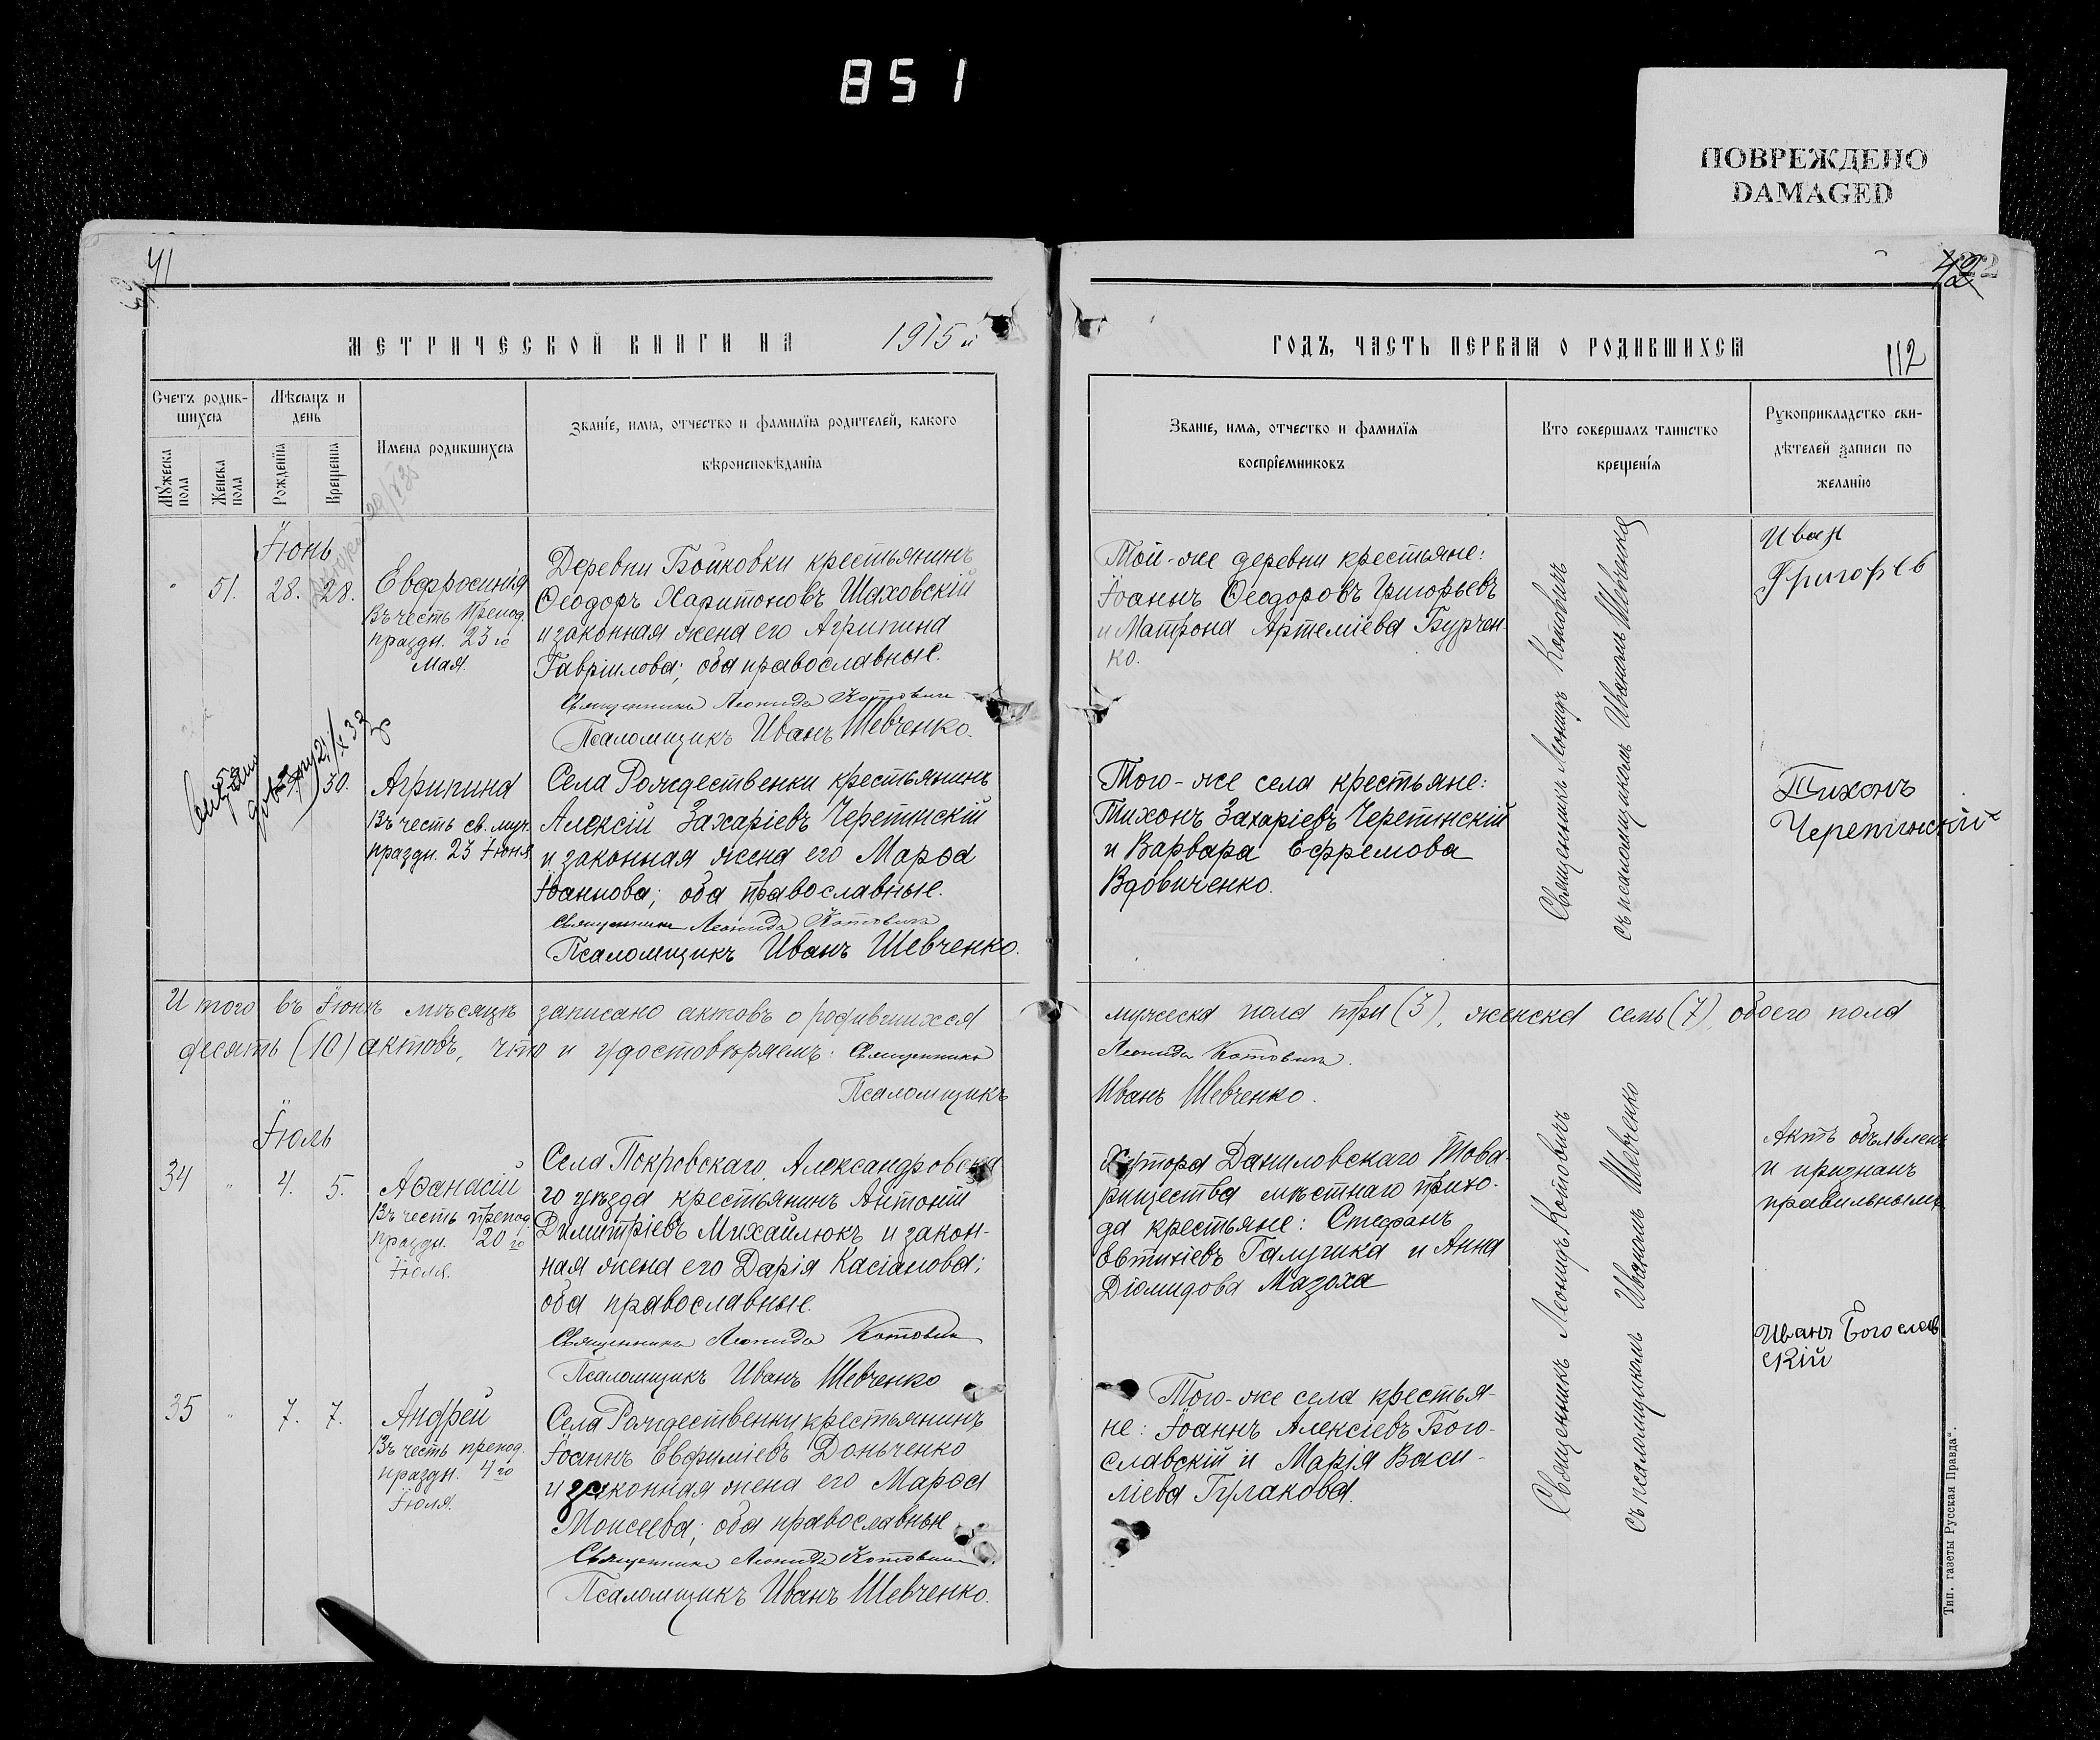 851
ПОВРЕЖДЕНО
DAMAGED
41
42
112
МЕТРИЧЕСКОЙ КНИГИ НА 1915 й
ГОДЪ, ЧАСТЬ ПЕРВАЯ О РОДИВШИХСЯ
Счетъ родив-
шихся
Мѣсяцъ и
день
Мужеска
пола
Женска
пола
Рожденія
Крещенія
Имена родившихся
Званіе, имя, отчество и фамилія родителей, какого
вѣроисповѣданія
Званіе, имя, отчество и фамилія
воспріемниковъ
Кто совершалъ таинство
крещенія
Рукоприкладство сви-
дѣтелей записи по
желанію
Іюнь
51. 28. 28.
Евфросинія
Въ честь Препод.
праздн. 23 го
Мая.
Деревни Бойковки крестьянинъ
Ѳеодоръ Харитоновъ Шаховскій
и законная жена его Агрипина
Гавріилова; оба православные.
Священникъ Леонидъ Котовичъ
Псаломщикъ Иванъ Шевченко.
Той-же деревни крестьяне:
Іоаннъ Ѳеодоровъ Григорьевъ
и Матрона Артеміева Бурчен-
ко.
Священникъ Леонидъ Котовичъ
съ псаломщикомъ Иваномъ Шевченко
Иван
Григорьев
30.
Агрипина
Въ честь св. муч.
праздн. 23 Іюня
Села Рождественки крестьянинъ
Алексій Захаріевъ Черетинскій
и законная жена его Марѳа
Іоаннова; оба православные.
Священникъ Леонидъ Котовичъ
Псаломщикъ Иванъ Шевченко.
Того-же села крестьяне:
Тихонъ Захаріевъ Черетинскій
и Варвара Ефремова
Вдовиченко.
Тихонъ
Черетинскій
Итого въ Іюнѣ мѣсяцѣ записано актовъ о родившихся мужеска пола три (3), женска семь (7), обоего пола
десять (10) актовъ, что и удостовѣряемъ: Священникъ Леонидъ Котовичъ.
Псаломщикъ Иванъ Шевченко.
Іюль
34 4. 5.
Аѳанасій
Въ честь препод.
праздн. 20 го
Іюля.
Села Покровскаго, Александровска-
го уѣзда крестьянинъ Антоній
Димитріевъ Михайлюкъ и закон-
ная жена его Дарія Касіанова;
оба православные.
Священникъ Леонидъ Котовичъ
Псаломщикъ Иванъ Шевченко
Хутора Даниловскаго Това-
рищества мѣстнаго прихо-
да крестьяне: Стефанъ
Евтихіевъ Галушка и Анна
Діомидова Мазоха
Священникъ Леонидъ Котовичъ
съ псаломщикомъ Иваномъ Шевченко
Актъ объявленъ
и признанъ
правильнымъ
35 7. 7.
Андрей
Въ честь препод.
праздн. 4 го
Іюля.
Села Рождественки крестьянинъ
Іоаннъ Евфиміевъ Доньченко
и законная жена его Марѳа
Моисеева; оба православные
Священникъ Леонидъ Котовичъ
Псаломщикъ Иванъ Шевченко.
Того-же села крестья-
не: Іоаннъ Алексіевъ Бого-
славскій и Марія Васи-
ліева Гулакова.
Иванъ Богослав
скій
Тип. газеты „Русская Правда“.